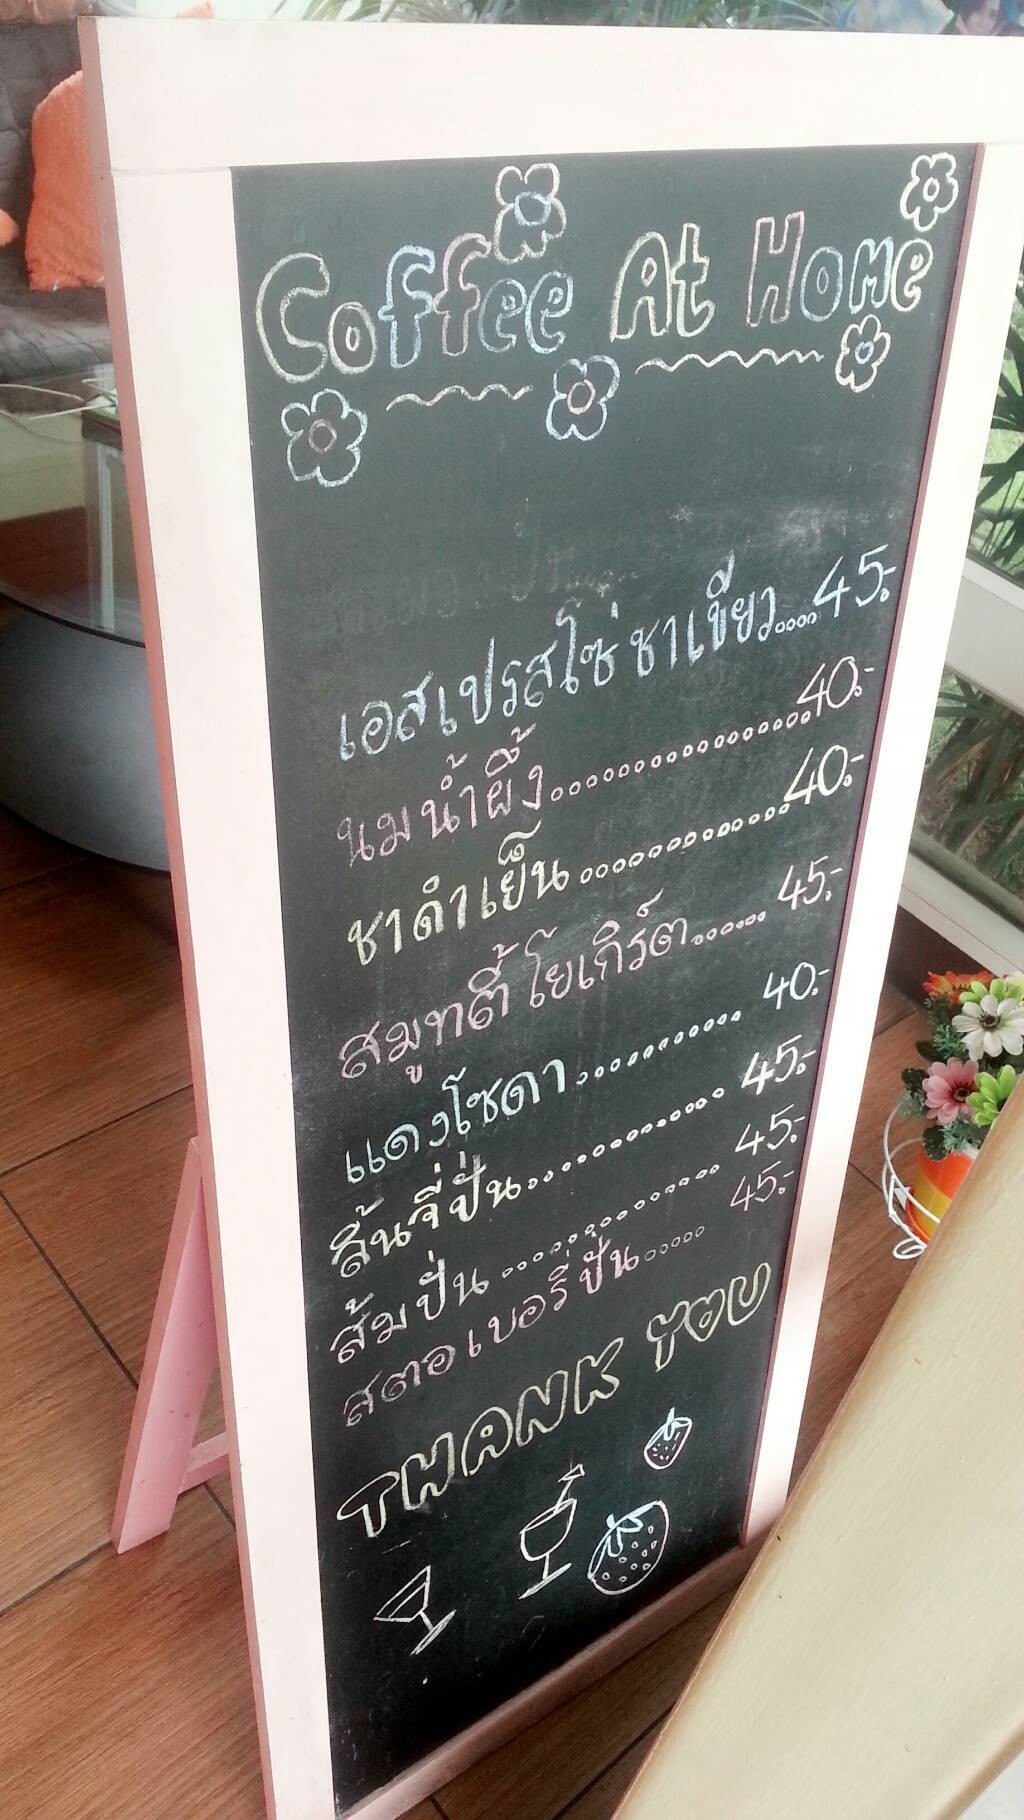 Coffee At Home
เอสเปรสโซ่ ชาเขียว.....45.-
นมน้ำผึ้ง....................40.-
ชาดำเย็น................40.-
สมูทตี้ โยเกิร์ต....... 45.-
แดงโซดา........... 40.-
ลิ้นจี่ปั่น............. 45.-
ส้มปั่น.............. 45.-
สตอเบอรี่ปั่น..... 45.-
THANK YOU